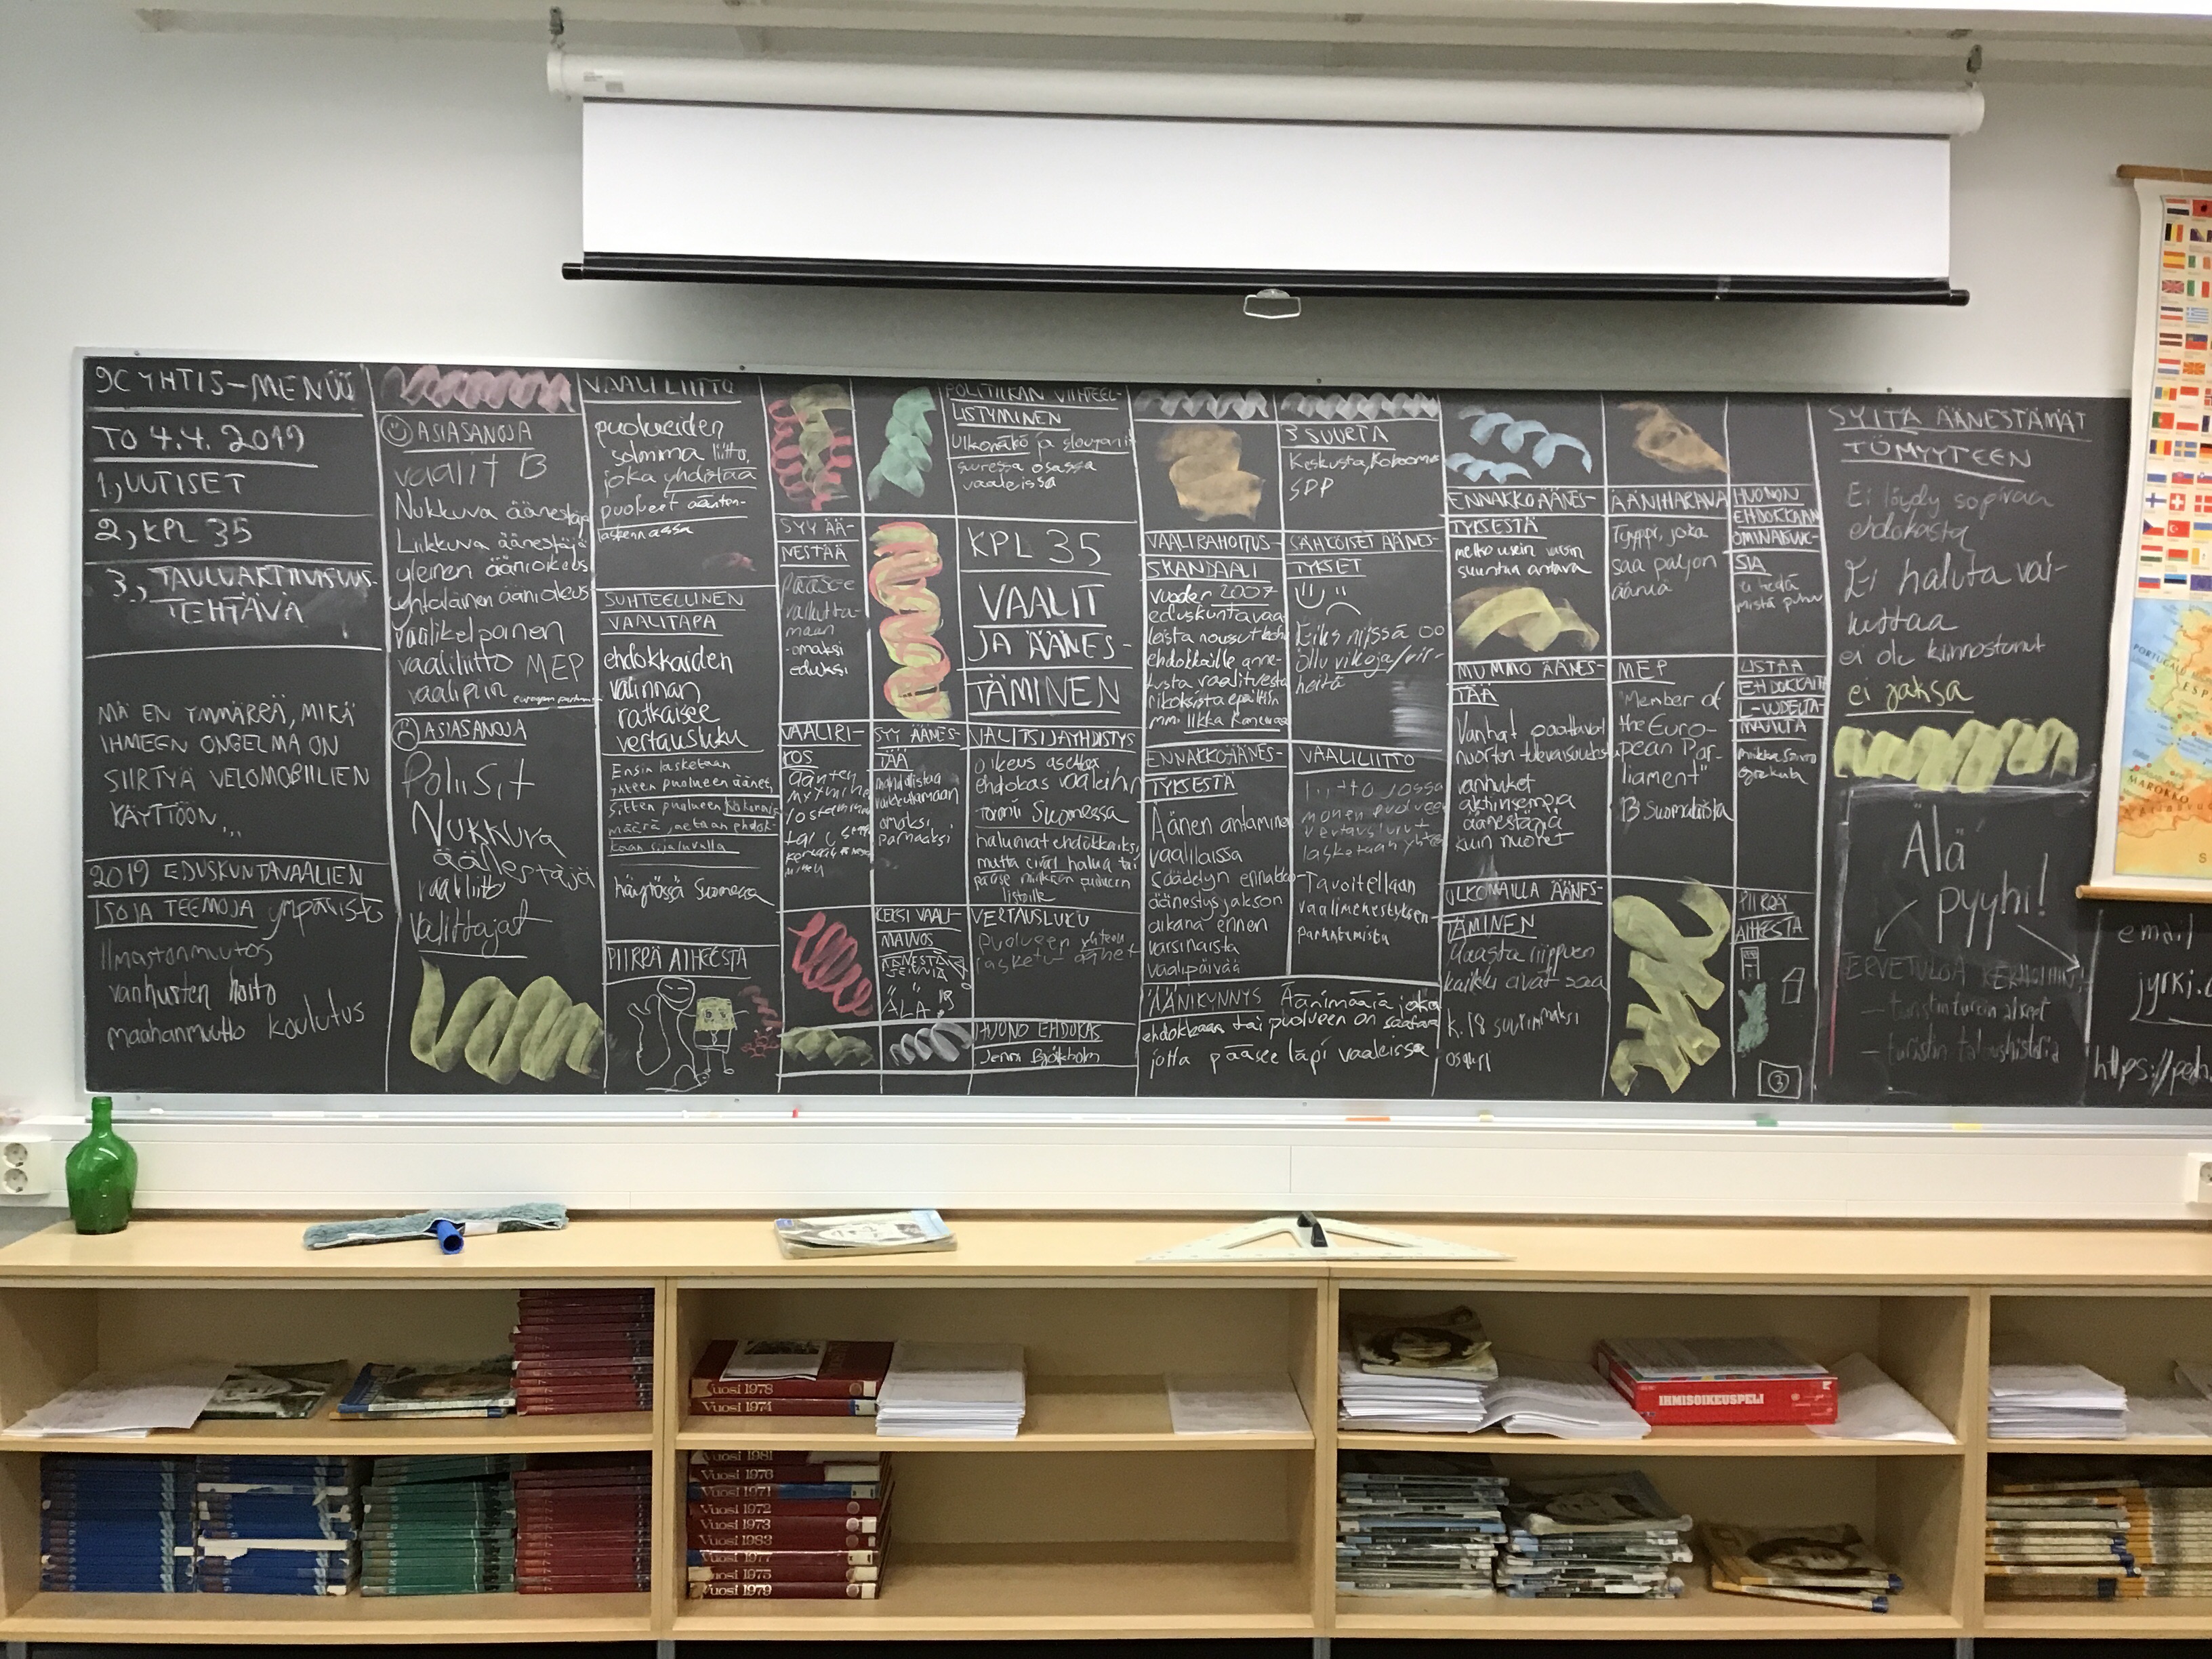 9C YHTIS-MENÜÜ
TO 4.4. 2019
1, UUTISET
2, KPL 35
3, TAULUAKTIIVISUUS-
TEHTÄVÄ
MÄ EN YMMÄRRÄ, MIKÄ
IHMEEN ONGELMA ON
SIIRTYÄ VELOMOBIILIEN
KÄYTTÖÖN...
2019 EDUSKUNTAVAALIEN
ISOJA TEEMOJA ympäristö
Ilmastonmuutos
vanhusten hoito
maahanmuutto koulutus
ASIASANOJA
vaalit B
Nukkuva äänestäjä
Liikkuva äänestäjä
yleinen äänioikeus
yhtäläinen äänioikeus
vaalikelpoinen
vaaliliitto MEP
vaalipiiri
ASIASANOJA
Poliisit
Nukkuva
äänestäjä
vaaliliitto
valittajat
VAALILIITTO
puolueiden
solmima liitto,
joka yhdistää
puolueet äänten-
laskennassa
SUHTEELLINEN
VAALITAPA
ehdokkaiden
valinnan
ratkaisee
vertausluku
Ensin lasketaan
yhteen puolueen äänet,
sitten puolueen kokonais-
määrä jaetaan ehdok-
kaan sijaluvulla
käytössä Suomessa
PIIRRÄ AIHEESTA
SYY ÄÄ-
NESTÄÄ
Pääsee
vaikutta-
maan
omaksi
eduksi
VAALIRI-
KOS
äänten
myyminen
SYY ÄÄNES-
TÄÄ
mahdollistaa
vaikuttamaan
omaksi
parhaaksi
KEKSI VAALI-
MAINOS
POLITIIKAN VIIHTEEL-
LISTYMINEN
Ulkonäkö ja sloganit
suuressa osassa
vaaleissa
KPL 35
VAALIT
JA ÄÄNES-
TÄMINEN
VALITSIJAYHDISTYS
oikeus asettaa
ehdokas vaaleihin
Toimii Suomessa
haluavat ehdokkaiksi
mutta eivät halua tai
pääse minkään puolueen
listoille
VERTAUSLUKU
puolueen yhteen
lasketut äänet
HUONO EHDOKAS
Jenni Björkholm
VAALIRAHOITUS-
SKANDAALI
vuoden 2007
eduskuntavaa-
leista noussut kohu
ehdokkaille anne-
tusta vaalituesta
rikoksista epäiltiin
mm. Ilkka Kanerva
ENNAKKOÄÄNES-
TYKSESTÄ
Äänen antaminen
vaalilaissa
säädetyn ennakko-
äänestysjakson
aikana ennen
varsinaista
vaalipäivää
ÄÄNIKYNNYS Äänimäärä joka
ehdokkaan tai puolueen on saatava
jotta pääsee läpi vaaleissa
3 SUURTA
Keskusta, Kokoomus
SDP
SÄHKÖISET ÄÄNES-
TYKSET
Eiks niissä oo
ollu vikoja/vir-
heitä
VAALILIITTO
Liitto jossa
monen puolueen
vertausluvut
lasketaan yhteen
Tavoitellaan
vaalimenestyksen
parantamista
ENNAKKOÄÄNES-
TYKSESTÄ
melko usein varsin
suuntaa antava
MUMMO ÄÄNES-
TÄÄ
Vanhat päättävät
nuorten tulevaisuuden
vanhukset
aktiivisempia
äänestäjiä
kuin nuoret
ULKOMAILLA ÄÄNES-
TÄMINEN
Maasta riippuen
kaikki eivät saa
ÄÄNIHARAVA
Tyyppi, joka
saa paljon
ääniä
MEP
"Member of
the Euro-
pean Par-
liament"
13 suomalaista
HUONON
EHDOKKAAN
OMINAISUUK-
SIA
ei tiedä
mistä puhuu
LISTAA
EHDOKKAITA
PIIRRÄ
AIHEESTA
3
SYITÄ ÄÄNESTÄMÄT-
TÖMYYTEEN
Ei löydy sopivaa
ehdokasta
Ei haluta vai-
kuttaa
ei ole kiinnostunut
ei jaksa
Älä
pyyhi!
TERVETULOA KERHOIHIN!
email
jyrki.
https://peda.
PORTUGAL
ESP
MAROKKO
Vuosi 1978
Vuosi 1974
Vuosi 1981
Vuosi 1976
Vuosi 1971
Vuosi 1972
Vuosi 1973
Vuosi 1983
Vuosi 1977
Vuosi 1975
Vuosi 1979
IHMISOIKEUSPELI